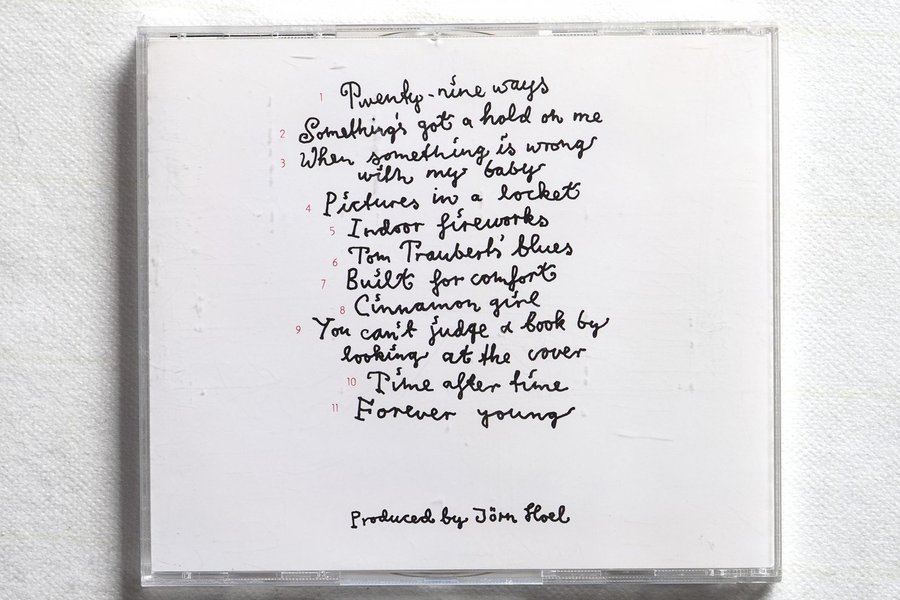 1 Twenty-nine ways
2 Something's got a hold on me
3 When something is wrong
with my baby
4 Pictures in a locket
5 Indoor fireworks
6 Tom Trauberts' blues
7 Built for comfort
8 Cinnamon girl
9 You can't judge a book by
looking at the cover
10 Time after time
11 Forever young
Produced by Jörn Hoel